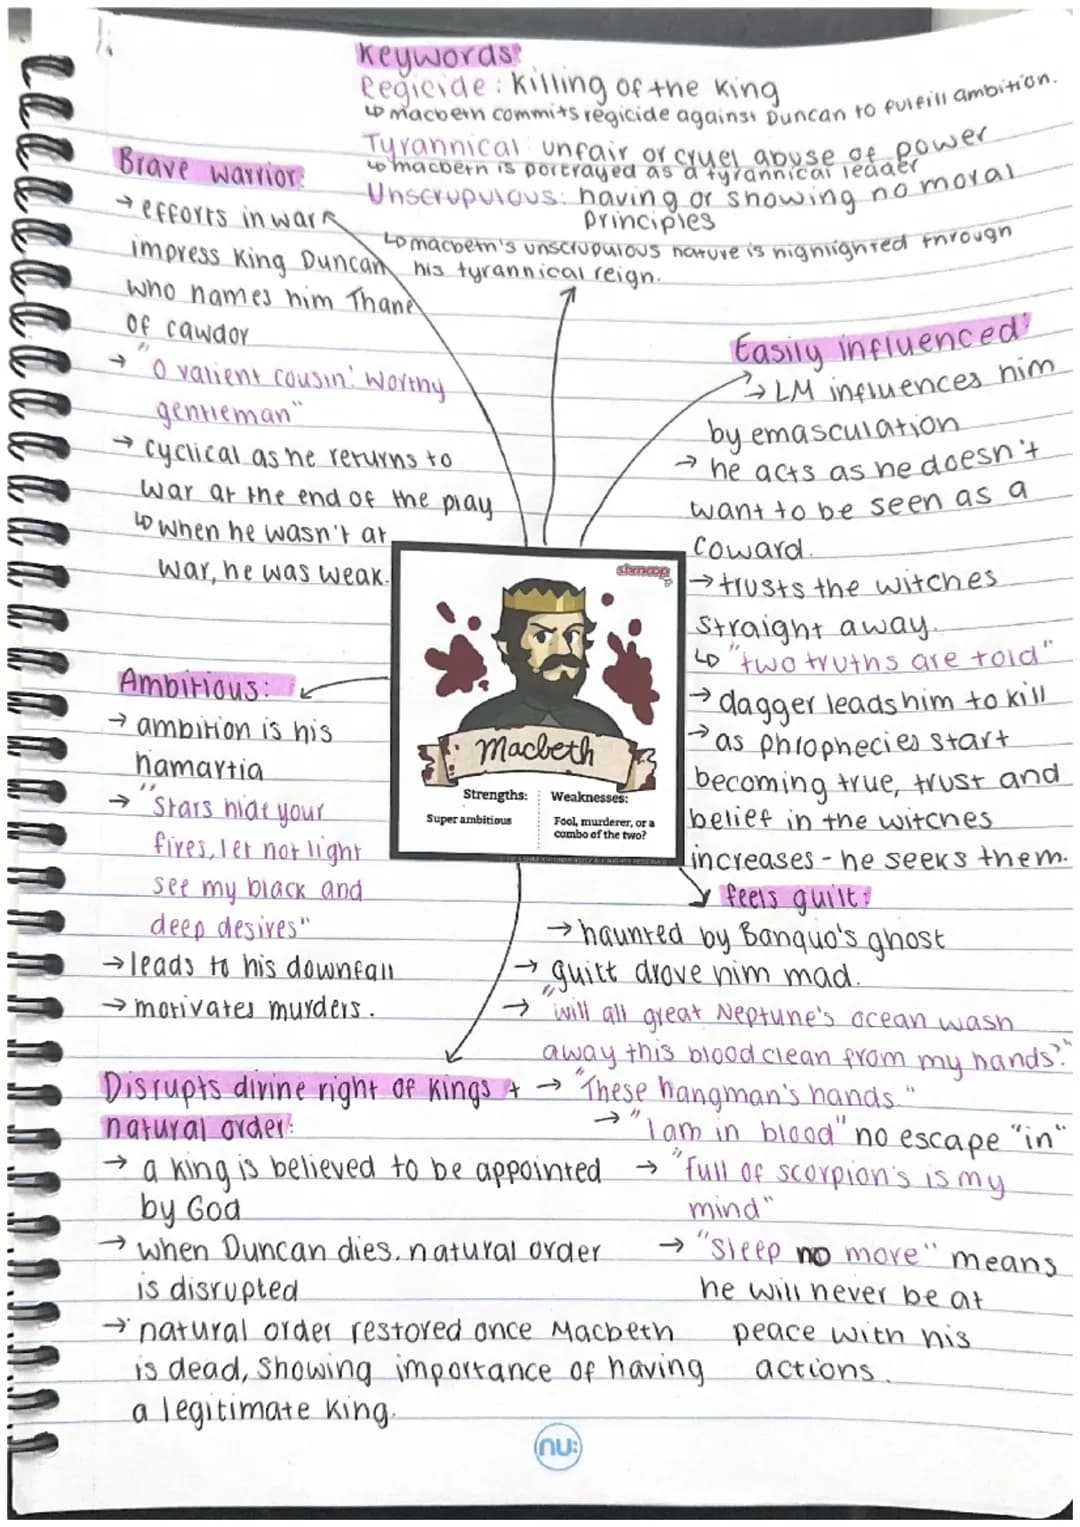 Keywords:
Regicide: killing of the King
↳ macbeth commits regicide against Duncan to fulfill ambition.
Tyrannical: unfair or cruel abuse of power
↳ macbeth is portrayed as a tyrannical leader
Unscrupulous: having or showing no moral
principles
↳ macbeth's unscrupulous nature is highlighted through
his tyrannical reign.
Brave warrior:
→ efforts in war
impress King Duncan
who names him Thane
of cawdor
→ "O valient cousin! Worthy
gentleman"
→ cyclical as he returns to
war at the end of the play
↳ when he wasn't at
war, he was weak.
Easily influenced:
→ LM influences him
by emasculation
→ he acts as he doesn't
want to be seen as a
coward.
→ trusts the witches
straight away.
↳ "two truths are told"
→ dagger leads him to kill
→ as phrophecies start
becoming true, trust and
belief in the witches
increases - he seeks them.
shmoop
Macbeth
Strengths:
Super ambitious
Weaknesses:
Fool, murderer, or a
combo of the two?
Ambitious:
→ ambition is his
hamartia
→ "Stars hide your
fires, let not light
see my black and
deep desires"
→ leads to his downfall
→ motivates murders.
feels guilt:
→ haunted by Banquo's ghost
→ guilt drove him mad.
→ "will all great Neptune's ocean wash
away this blood clean from my hands?"
→ "These hangman's hands."
→ "I am in blood" no escape "in"
→ "full of scorpion's is my
mind"
→ "Sleep no more" means
he will never be at
peace with his
actions.
Disrupts divine right of Kings +
natural order:
→ a king is believed to be appointed
by God
→ when Duncan dies, natural order
is disrupted
→ natural order restored once Macbeth
is dead, showing importance of having
a legitimate king.
nu: